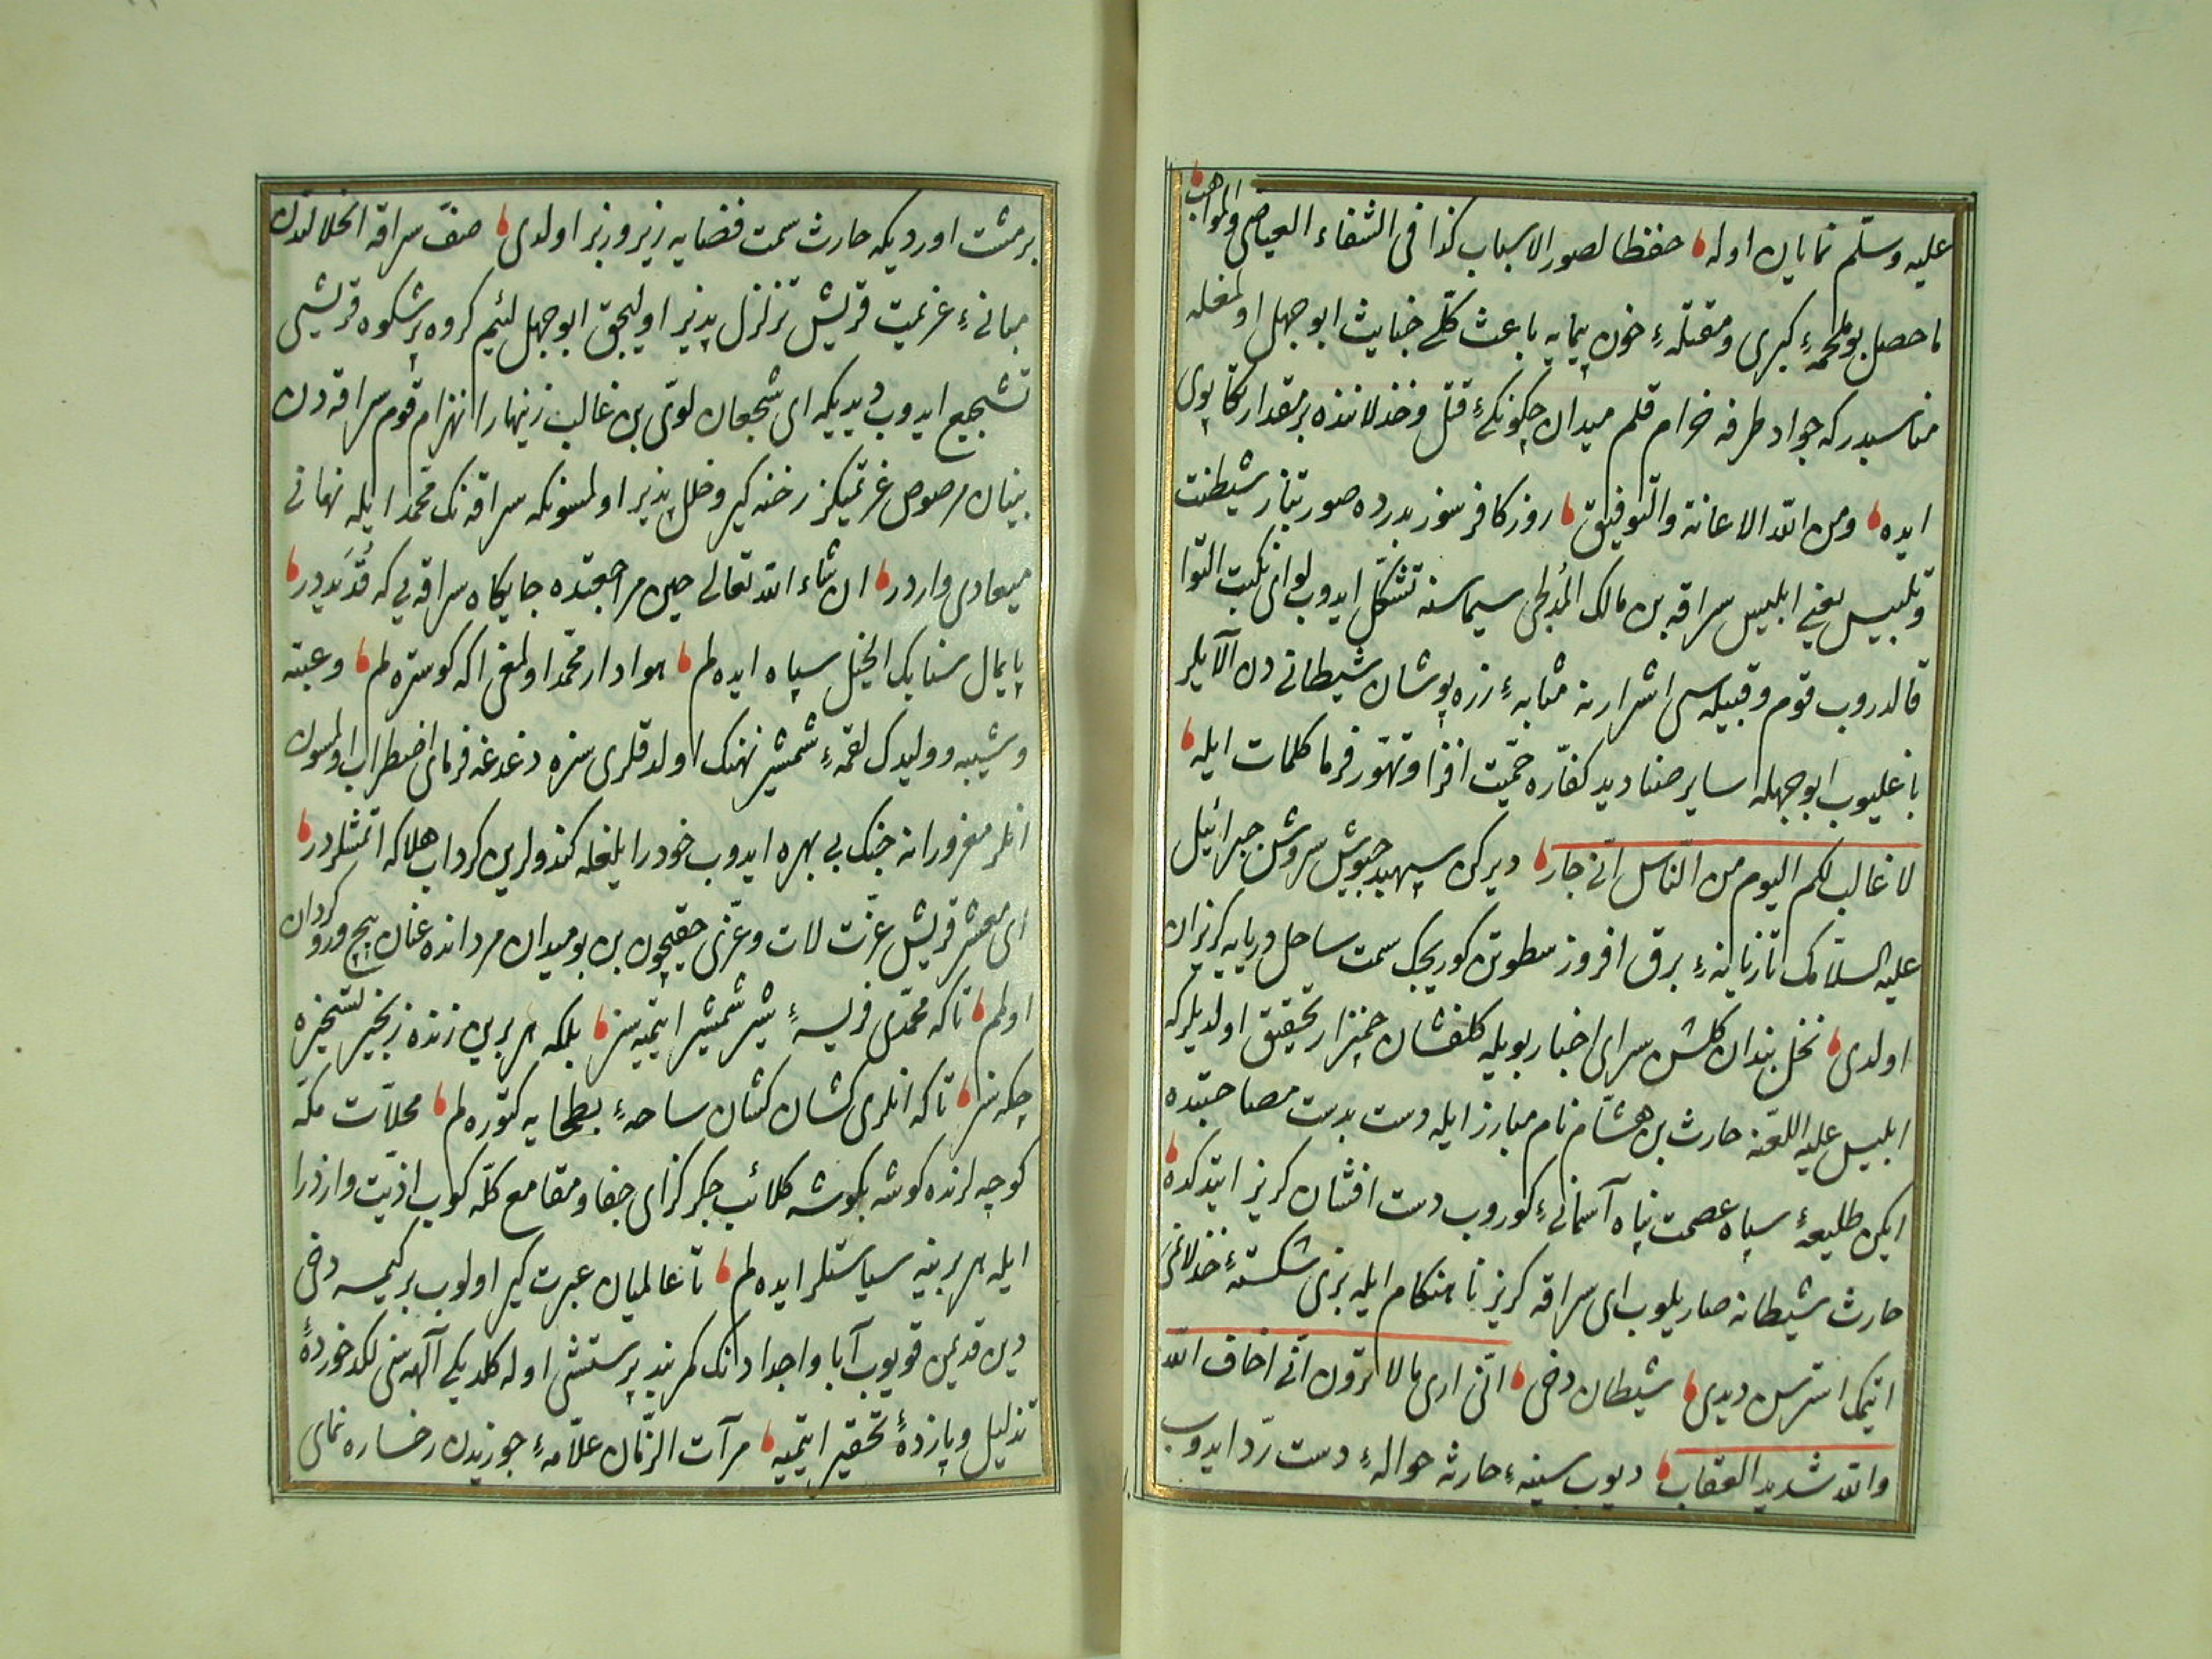 علیه وسلّم نمایان اوله ، حفظا لصور الاسباب کذا فی الشفاء العیاض والمواهب
ماحصل بو ملحمهٔ کبری ومقتلهٔ خون پیمایه باعث کلّی خباثت ابو جهل اولمغله
مناسبدر که جواد طرفه خرام قلم میدان چکونکیٔ قتل وخذلاننده بر مقدار تکاپوی
ایده ، ومن الله الاعانة والتّوفیق ، روز کافر سوز بدرده صورتباز شیطنت
وتلبیس یعنی ابلیس سراقه بن مالک المُدلجی سیماسنه تشکّل ایدوب لوای نکبت التوا
قالدروب قوم وقبیله سی اشرارنه مثابهٔ زره پوشان شیطانی دن آلایلر
باغلیوب ابو جهله سایر صنادید کفّاره حمیّت افزا وتهوّر فرما کلمات ایله ،
لا غالب لکم الیوم من النّاس انّی جار ، دیرکن سپهبد جیوش سروش جبرائیل
علیه السلامک تازیانهٔ برق افروز سطوتن کوریجک سمت ساحل دریایه کریزان
اولدی ، نخل بندان کلشن سرای اخبار بویله کلفشان چمنزار تحقیق اولدیلر که
ابلیس علیه اللعنه حارث بن هشام نام مبارز ایله دست بدست مصاحبتده
ایکن طلیعهٔ سپاه عصمت پناه آسمانیٔ کوروب دست افشان کریز ایتدکده ،
حارث شیطانه صاریلوب ای سراقه کریز نا هنکام ایله بزی شکستهٔ خذلانمی
ایتمک استرسن دیدی ، شیطان دخی ، انّی اری مالا ترون انّی اخاف الله
والله شدید العقاب ، دیوب سینهٔ حارثه حوالهٔ دست ردّ ایدوب
بر مشت اوردیکه حارث سمت فضایه زیر وزبر اولدی ، صفّ سراقه انحلالندن
مبانیٔ عزیمت قریش تزلزل پذیر اولیجق ابو جهل لئیم کروه پر شکوه قریشی
تشجیع ایدوب دیدیکه ای شجعان لوی بن غالب زنهار انهزام قوم سراقه دن
بنیان مرصوص عزیمتکز رخنه کیر وخلل پذیر اولمسونکه سراقه نک محمّد ایله نهانی
میعادی واردر ، ان شاء الله تعالی حین مراجعتده جایکاه سراقه یی که قُدَیددر ،
پایمال سنابک الخیل سپاه ایده لم ، هوادار محمّد اولمغی اکه کوستره لم ، وعتبه
وشیبه وولیدک لقمهٔ شمشیر نهنک اولدقلری سزه دغدغه فرمای اضطراب اولمسون
انلر مغرورانه جنک بی بهره ایدوب خودرایلغله کندولرین کرداب هلاکه اتمشلردر ،
ای معشر قریش عزّت لات وعزّی حقیچون بن بو میدان مردانده عنان پیچ ورو کردان
اولمم ، تا که محمّدی فریسهٔ شیر شمشیر ایتمیه سز ، بلکه هر برین زنده زنجیر تسخیره
چکه سز ، تا که انلری کشان کشان ساحهٔ بطحایه کتوره لم ، محلّات مکّه
کوچه لرنده کوشه بکوشه کلالیب جکر کزای جفا ومقامع کلّه کوب اذیّت وازدرا
ایله هر برینه سیاستلر ایده لم ، تا عالمیان عبرت کیر اولوب بر کیمسه دخی
دین قدیمن قویوب آبا واجدادنک کمر بند پرستشی اوله کلدیکی آلهه سنی لکد خوردهٔ
تذلیل وپازدهٔ تحقیر ایتمیه ، مرآت الزّمان علّامهٔ جوزیدن رخساره نمای